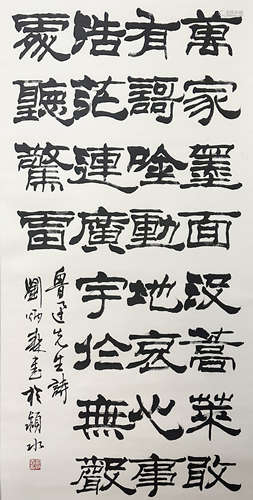 萬家墨面没蒿萊敢
有謌唫動地哀心事
浩茫連廣宇於無聲
處聽驚雷
魯迅先生詩
劉炳森書於潁水